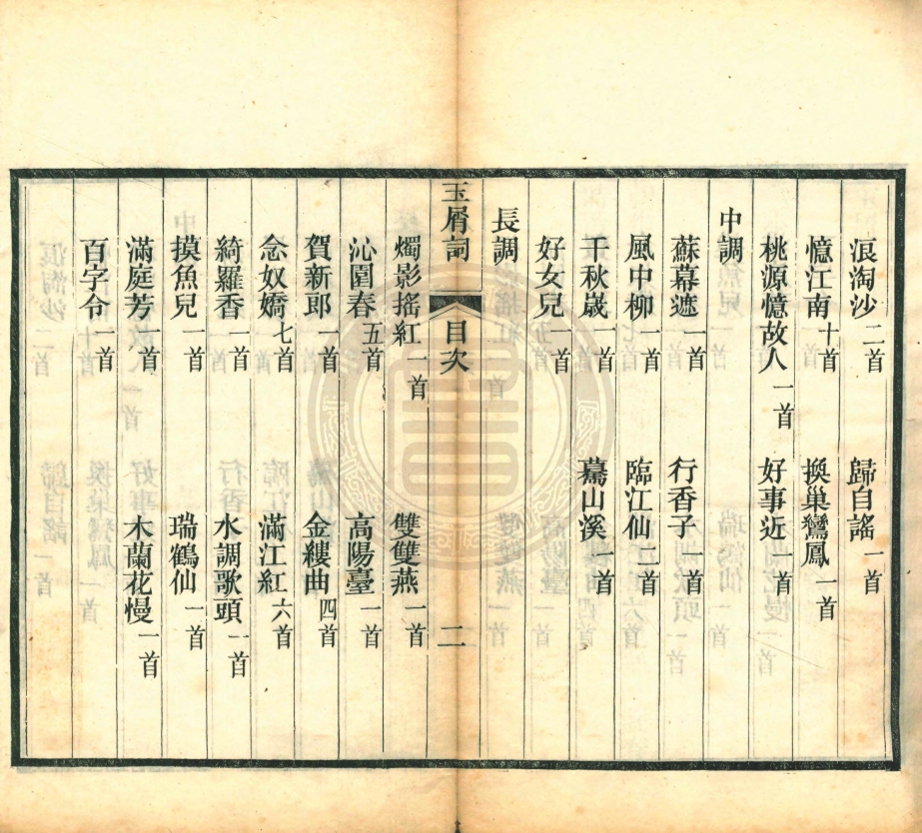 浪淘沙二首 歸自謠一首
憶江南十首 換巢鸞鳳一首
桃源憶故人一首 好事近一首
中調
蘇幕遮一首 行香子一首
風中柳一首 臨江仙二首
千秋歲一首 驀山溪一首
好女兒一首
長調
玉屑詞 目次 二
燭影搖紅一首 雙雙燕一首
沁園春五首 高陽臺一首
賀新郎一首 金縷曲四首
念奴嬌七首 滿江紅六首
綺羅香一首 水調歌頭一首
摸魚兒一首 瑞鶴仙一首
滿庭芳一首 木蘭花慢一首
百字令一首